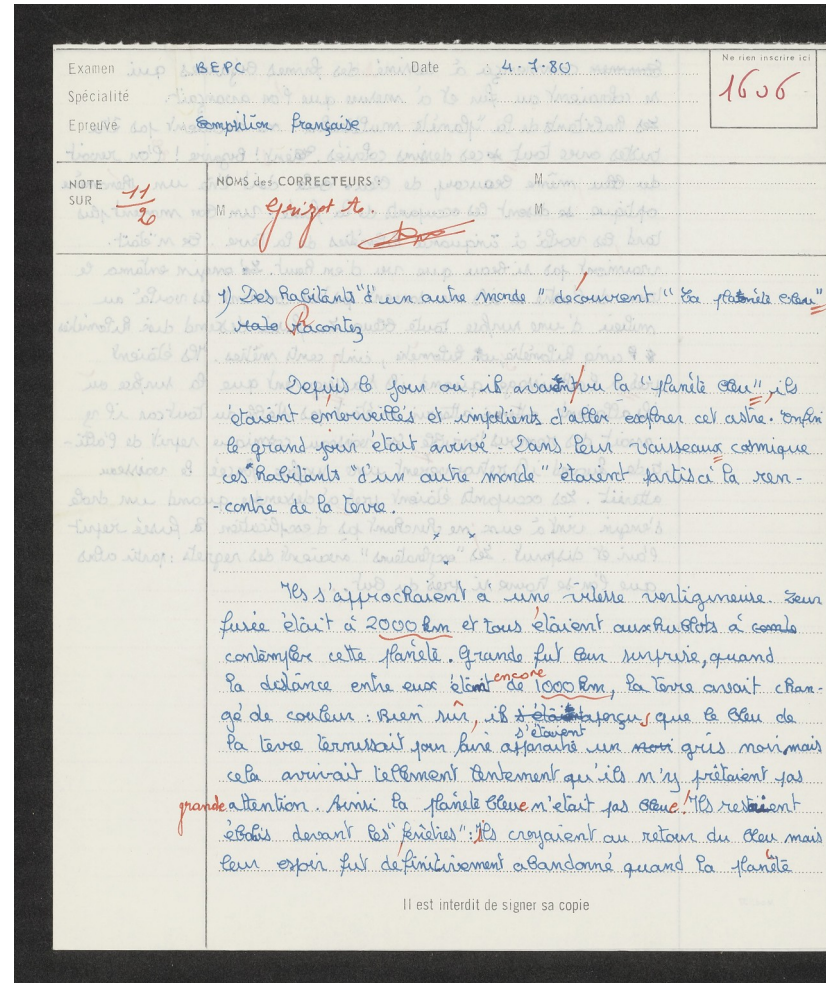 Ne rien inscrire ici
Examen BEPC Date 4.7.80
1606
Spécialité
Epreuve Composition française
NOTE SUR 11/20
NOMS des CORRECTEURS : M
M Grizot A. M
1) Des habitants "d'un autre monde" découvrent "la planète bleu"
Racontez
Depuis le jour où il avaient vu la "planéte bleu", ils
étaient émerveillés et impatients d'aller explorer cet astre. Enfin
le grand jour était arrivé. Dans leur vaisseaux cosmique
ces "habitants "d'un autre monde" étaient partis à la ren-
-contre de la terre.
Ils s'approchaient à une vitesse vertigineuse. Leur
fusée était à 2000 km et tous étaient aux hublots à
contempler cette planète. Grande fut leur surprise, quand
la distance entre eux était encore de 1000 km, la terre avait chan-
gé de couleur : Bien sûr, il s'étaient aperçus que le bleu de
la terre ternissait pour faire apparaitre un gris noir, mais
cela arrivait tellement lentement qu'ils n'y prêtaient pas
grande attention. Ainsi la planète bleue n'était pas bleue! Ils restaient
ébahis devant les "fenêtres": Ils croyaient au retour du bleu mais
leur espoir fut définitivement abandonné quand la planète
Il est interdit de signer sa copie